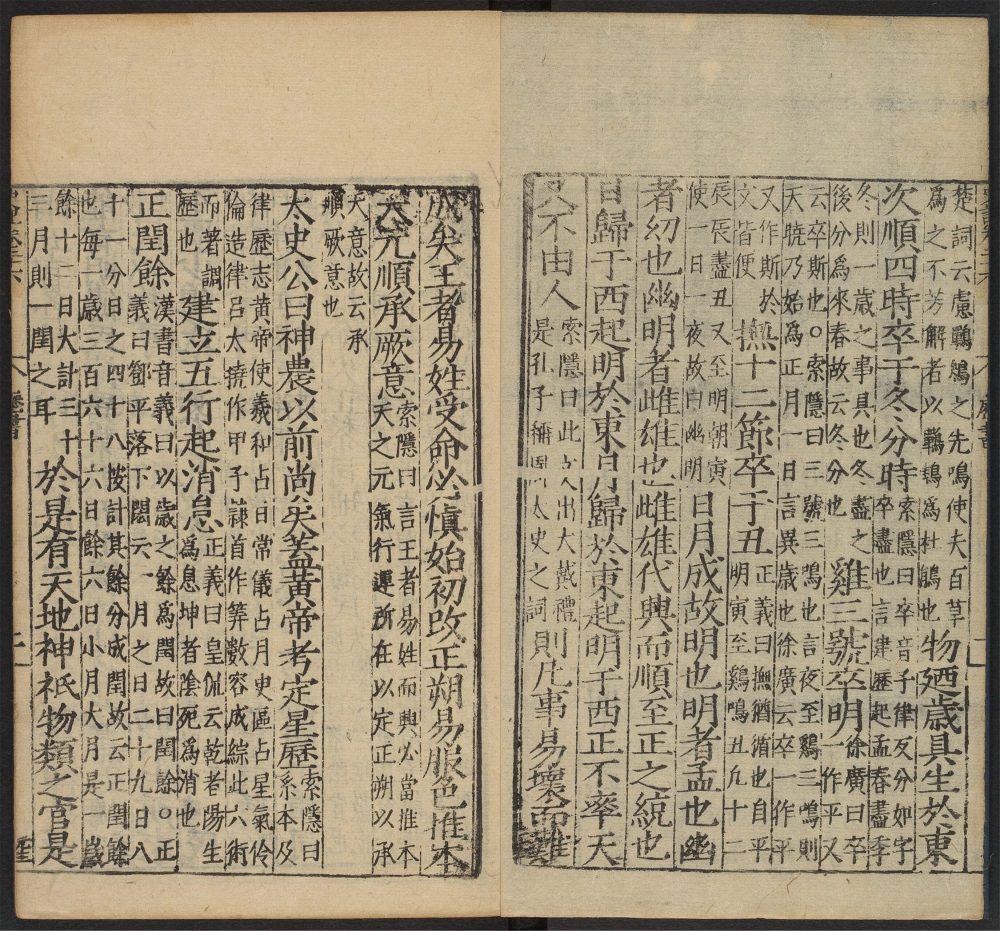 楚詞云慮鷤鴂之先鳴使夫百草
為之不芳解者以鷤鴂為杜鵑也
物廼歲具生於東
次順四時卒于冬分時
索隱曰卒音子律反分如字
卒盡也言建歷起孟春盡季
冬則一歲之事具也冬盡之
後分為來春故云冬分也
雞三號卒明
徐廣曰卒
一作平又
云卒斯也○索隱曰三號三鳴也言夜至雞三鳴則
天曉乃始為正月一日言異歲也徐廣云卒一作平
又作斯於
文皆便
撫十二節卒于丑
正義曰撫猶循也自平
明寅至鷄鳴丑凡十二
辰辰盡丑又至明朝寅
使一日一夜故曰幽明
日月成故明也明者孟也幽
者幼也幽明者雌雄也雌雄代興而順至正之統也
日歸于西起明於東月歸於東起明于西正不率天
又不由人
索隱曰此文出大戴禮
是孔子稱周太史之詞
則凡事易壞而難
成矣王者易姓受命必慎始初改正朔易服色推本
天元順承厥意
索隱曰言王者易姓而興必當推本
天之元氣行運所在以定正朔以承
天意故云承
順厥意也
太史公曰神農以前尚矣蓋黃帝考定星歷
索隱曰
系本及
律歷志黃帝使羲和占日常儀占月臾區占星氣伶
倫造律呂太撓作甲子隸首作筭數容成綜此六術
而著調
歷也
建立五行起消息
正義曰皇侃云乾者陽生
為息坤者陰死為消也
正閏餘
漢書音義曰以歲之餘為閏故曰閏餘○正
義曰鄧平落下閎云一月之日二十九日八
十一分日之四十八按計其餘分成閏故云正閏餘
也每一歲三百六十六日餘六日小月大月是一歲
餘十二日大計三十
三月則一閏之耳
於是有天地神祇物類之官是